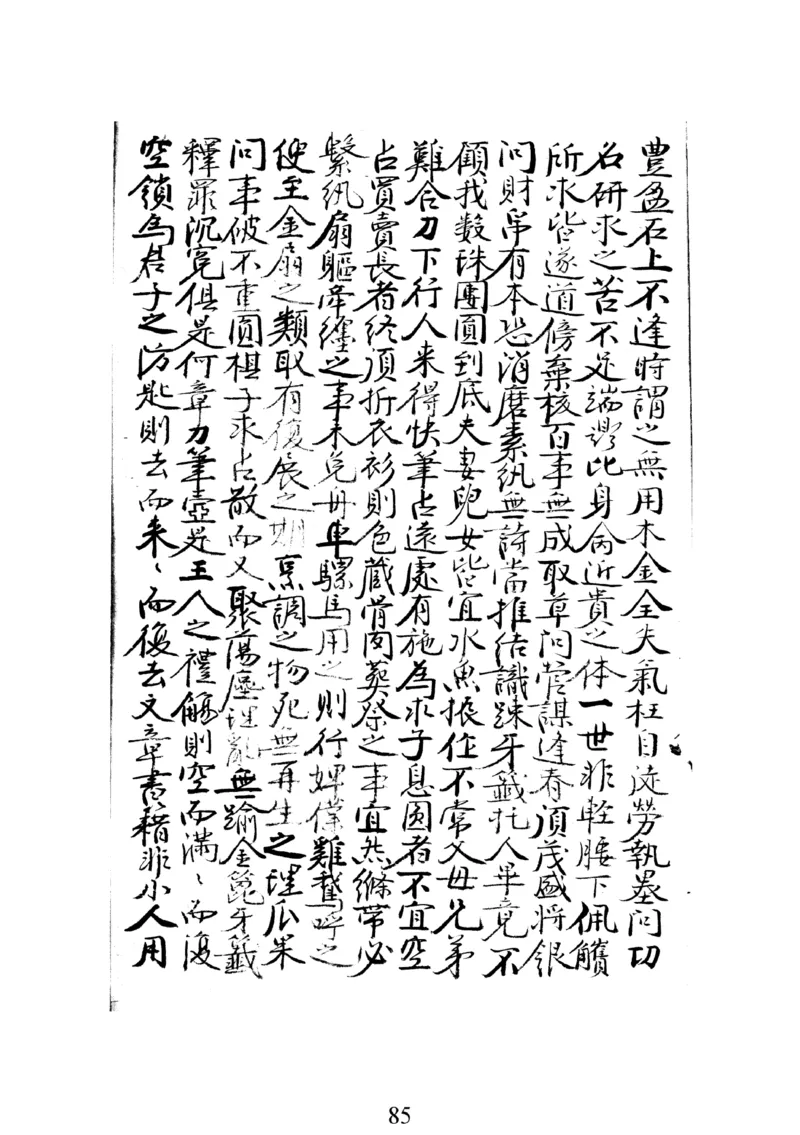 豊盈石上不逢時謂之無用木金全失氣枉自徒勞執墨问功
名研求之苦不足端硯比身病近貴之体一世非輕腰下佩觿
所求皆遂道傍棄核百事無成取草问营謀逢春須茂盛将銀
问財帛有本恐消磨素紈無詩當推结識踈牙籤托人畢竟不
顧我数珠團圓到底夫妻兒女皆宜水魚振作不常父母兄弟
難合刀下行人来得快筆占遠處有施為求子息圆者不宜空
占買賣長者终須折衣衫則色藏骨肉葬祭之事宜然縧帶必
繫紈扇軀牽纏之事未免舟車騾馬用之則行婢僕雞鵞呼之
使至金扇之類取有復展之期烹調之物死無再生之理瓜果
问事破不重圆棋子求占散而又聚蕩塵理亂無踰金篦牙籤
釋罪沉冤俱是何章刀筆壺是王人之禮觴則空而滿、而復
空鎖為君子之防匙則去而来、而復去文章書籍非小人用
85